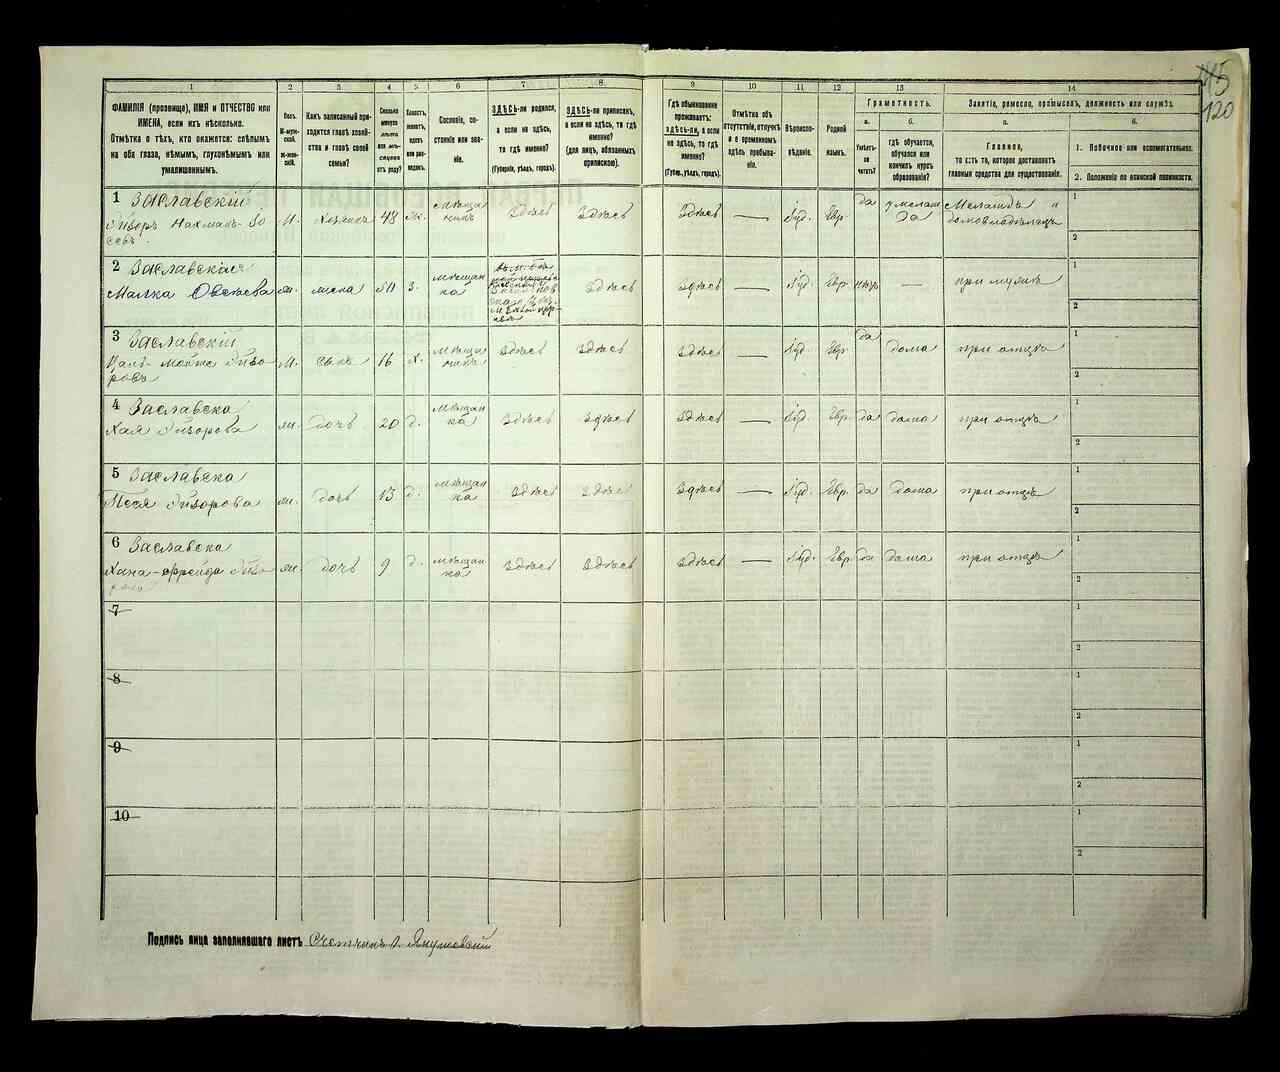 115
120
1 2 3 4 5 6 7 8 9 10 11 12 13 14
ФАМИЛІЯ (прозвище), ИМЯ и ОТЧЕСТВО или
ИМЕНА, если ихъ нѣсколько.
Отмѣтка о тѣхъ, кто окажется: слѣпымъ
на оба глаза, нѣмымъ, глухонѣмымъ или
умалишеннымъ.
Полъ.
М-мужской.
Ж-женскій.
Какъ записанный приходится главѣ хозяйства и главѣ своей семьи?
Сколько минуло лѣтъ или мѣсяцевъ отъ роду?
Холостъ, женатъ, вдовъ или разведенъ.
Сословіе, состояніе или званіе.
ЗДѢСЬ-ли родился,
а если не здѣсь,
то гдѣ именно?
(Губернія, уѣздъ, городъ).
ЗДѢСЬ-ли приписанъ,
а если не здѣсь, то гдѣ
именно?
(для лицъ, обязанныхъ
припискою).
Гдѣ обыкновенно
проживаетъ:
здѣсь-ли, а если
не здѣсь, то гдѣ
именно?
(Губерн., уѣздъ, городъ).
Отмѣтка объ
отсутствіи, отлучкѣ
и о временномъ
здѣсь пребываніи.
Вѣроисповѣданіе.
Родной
языкъ.
Грамотность.
а.
Умѣетъ-ли
читать?
б.
гдѣ обучается,
обучался или
кончилъ курсъ
образованія?
Занятіе, ремесло, промыселъ, должность или служба.
а.
Главное,
то есть то, которое доставляетъ
главныя средства для существованія.
б.
1. Побочное или вспомогательное.
2. Положеніе по воинской повинности.
1 Заславскій
Нахманъ
М. Хозяинъ 48 ж. мѣщанинъ здѣсь здѣсь здѣсь — Іуд. Евр. да
домовладѣлецъ
1
2
2 Заславская
Малка
ж. жена 50 з. мѣщанка
здѣсь здѣсь — Іуд. Евр. нѣтъ — при мужѣ
1
2
3 Заславскій
М. сынъ 16 х. мѣщанинъ здѣсь здѣсь здѣсь — Іуд. Евр. да дома при отцѣ
1
2
4 Заславска
Хая
ж. дочь 20 д. мѣщанка здѣсь здѣсь здѣсь — Іуд. Евр. да дома при отцѣ
1
2
5 Заславска
Песя
ж. дочь 13 д. мѣщанка здѣсь здѣсь здѣсь — Іуд. Евр. да дома при отцѣ
1
2
6 Заславска
Хана-Фрейда
ж. дочь 9 д. мѣщанка здѣсь здѣсь здѣсь — Іуд. Евр. да дома при отцѣ
1
2
7
1
2
8
1
2
9
1
2
10
1
2
Подпись лица заполнявшаго листъ Счетчикъ